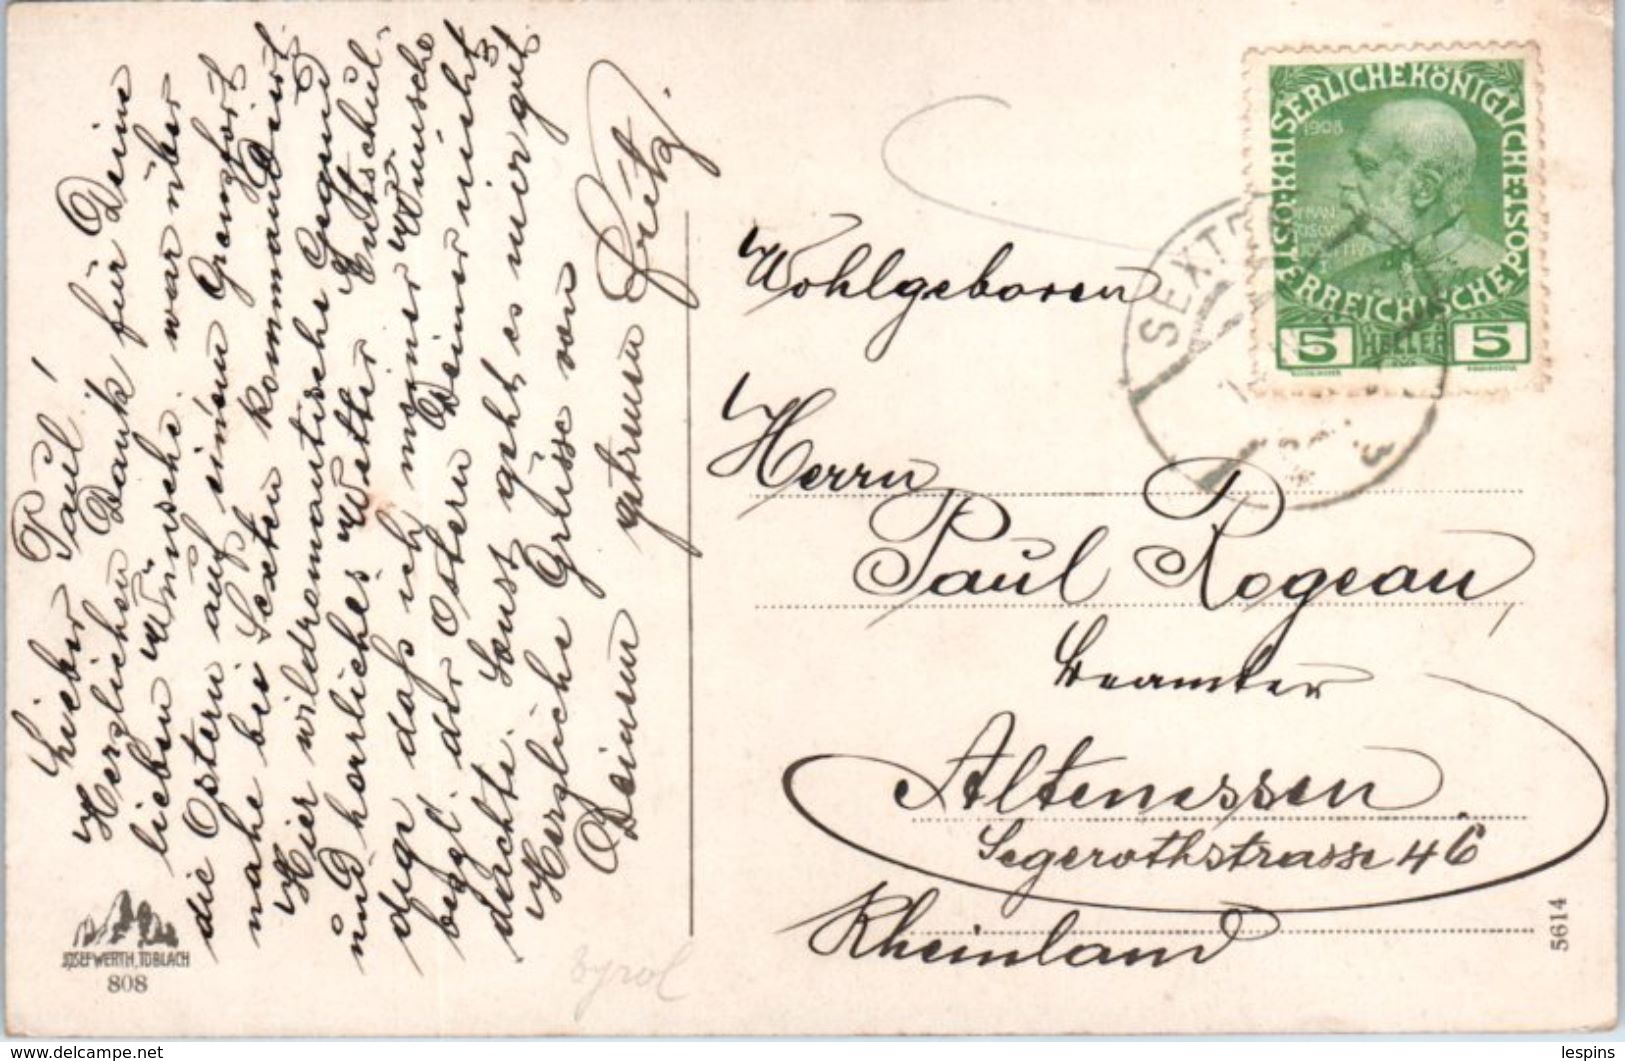 Lieber Paul!
Herzlichen Dank für Deine
lieben Wünsche. war über
die Ostern auf einen Grenzfort
nahe bei Sexten kommandirt
Hier wildromantische Gegend
und herrliches Wetter. Entschul-
dige daß ich meiner Wünsche
bezgl. der Ostern Deiner nicht
dachte. Sonst geht es mir gut
Herzliche Grüsse von
Deinem getreuen Fritz.
JOSEF WERTH, TOBLACH
808
Tyrol
KAISERLICHEKÖNIGLICHE ÖSTERREICHISCHE POST
1908
5 HELLER 5
SEXTEN
Wohlgeboren
Herrn
Paul Rogeau,
Beamter
Altenessen
Segerothstrasse 46
Rheinland
5614
lespins
www.delcampe.net